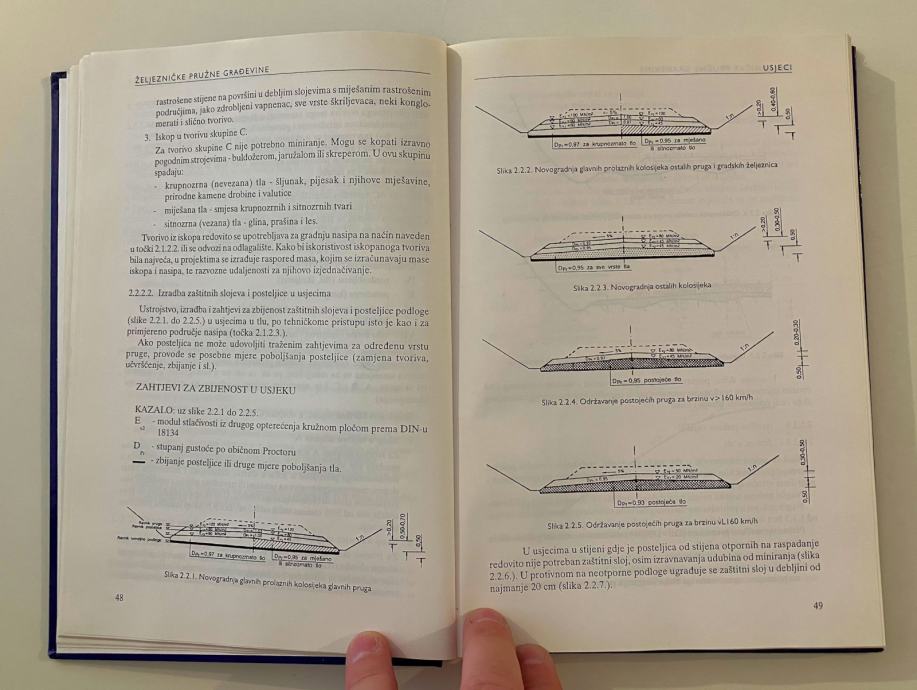 ŽELJEZNIČKE PRUŽNE GRAĐEVINE
rastrošene stijene na površini u debljim slojevima s miješanim rastrošenim
područjima, jako zdrobljeni vapnenac, sve vrste škriljevaca, neki konglo-
merati i slično tvorivo.
3. Iskop u tvorivu skupine C
Za tvorivo skupine C nije potrebno miniranje. Mogu se kopati izravno
pogodnim strojevima - buldožerom, jaružalom ili skreperom. U ovu skupinu
spadaju:
- krupnozrna (nevezana) tla - šljunak, pijesak i njihove mješavine,
prirodne kamene drobine i valutice
- miješana tla - smjesa krupnozrnih i sitnozrnih tvari
- sitnozrna (vezana) tla - glina, prašina i les.
Tvorivo iz iskopa redovito se upotrebljava za gradnju nasipa na način naveden
u točki 2.1.2.2. ili se odvozi na odlagalište. Kako bi iskoristivost iskopanoga tvoriva
bila najveća, u projektima se izrađuje raspored masa, kojim se izračunavaju mase
iskopa i nasipa, te razvozne udaljenosti za njihovo izjednačivanje.
2.2.2.2. Izradba zaštitnih slojeva i posteljice u usjecima
Ustrojstvo, izradba i zahtjevi za zbijenost zaštitnih slojeva i posteljice podloge
(slike 2.2.1. do 2.2.5.) u usjecima u tlu, po tehničkome pristupu isto je kao i za
primjereno područje nasipa (točka 2.1.2.3.).
Ako posteljica ne može udovoljiti traženim zahtjevima za određenu vrstu
pruge, provode se posebne mjere poboljšanja posteljice (zamjena tvoriva,
učvršćenje, zbijanje i sl.).
ZAHTJEVI ZA ZBIJENOST U USJEKU
KAZALO: uz slike 2.2.1 do 2.2.5.
E - modul stlačivosti iz drugog opterećenja kružnom pločom prema DIN-u
v2
18134
D - stupanj gustoće po običnom Proctoru
Pr
- zbijanje posteljice ili druge mjere poboljšanja tla.
>0,20
0,50-0,70
0,50
1:n
DPr=0,97 za krupnozrnato tlo
DPr=0,95 za mješano
ili sitnozrnato tlo
Slika 2.2.1. Novogradnja glavnih prolaznih kolosijeka glavnih pruga
48
USJECI
>0,20
0,40-0,60
0,50
1:n
DPr=0,97 za krupnozrnato tlo
DPr=0,95 za mješano
ili sitnozrnato tlo
Slika 2.2.2. Novogradnja glavnih prolaznih kolosijeka ostalih pruga i gradskih željeznica
>0,20
0,30-0,50
0,50
1:n
DPr=0,95 za sve vrste tla
Slika 2.2.3. Novogradnja ostalih kolosijeka
0,20-0,30
0,50
1:n
5%
DPr=0,95 postojeće tlo
Slika 2.2.4. Održavanje postojećih pruga za brzinu v>160 km/h
0,30-0,50
0,50
1:n
5%
DPr=0,93 postojeće tlo
Slika 2.2.5. Održavanje postojećih pruga za brzinu vL160 km/h
U usjecima u stijeni gdje je posteljica od stijena otpornih na raspadanje
redovito nije potreban zaštitni sloj, osim izravnavanja udubina od miniranja (slika
2.2.6.). U protivnom na neotporne podloge ugrađuje se zaštitni sloj u debljini od
najmanje 20 cm (slika 2.2.7.).
49